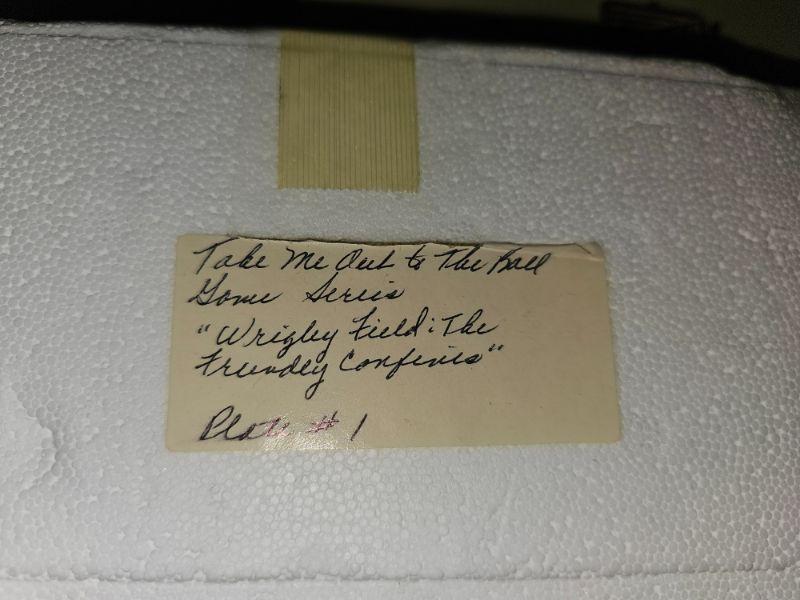 Take Me Out to The Ball
Game Series
"Wrigley Field: The
Friendly Confines"
Plate #1